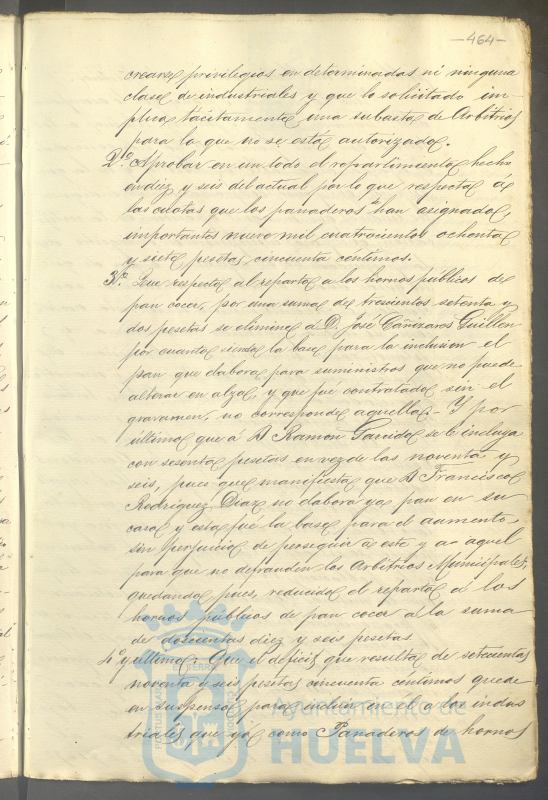 -464-
crearse privilegios en determinadas ni ninguna
clase de industriales y que lo solicitado im-
plica tácitamente una subasta de Arbitrios
para lo que no se está autorizado.
2º. Aprobar en un todo el repartimiento hecho
en diez y seis del actual por lo que respecta á
las cuotas que los panaderos se han asignado,
importantes nueve mil cuatrocientos ochenta
y siete pesetas cincuenta centimos.
3º. Que respecto al reparto a los hornos públicos de
pan cocer, por una suma de trescientos setenta y
dos pesetas se elimine á D. José Cañizares Guillen
por cuanto siendo la base para la inclusion el
pan que elabora para suministros que no puede
alterar en alza, y que fué contratado sin el
gravamen, no corresponde aquella. - Y por
último que á D Ramon Garrido se le incluya
con sesenta pesetas en vez de las noventa y
seis, pues que manifiesta que D Francisco
Rodriguez Diaz no elabora ya pan en su
casa y esta fué la base para el aumento
sin perjuicio de perseguir á este y a aquel
para que no defrauden los Arbitrios Municipales,
quedando pues, reducido el reparto á los
hornos públicos de pan cocer a la suma
de doscientas diez y seis pesetas
4º y último: Que el déficit que resulta de setecientas
noventa y seis pesetas cincuenta centimos quede
en suspenso para incluir en el a los indus
triales que yá como Panaderos de hornos
Ayuntamiento de
HUELVA